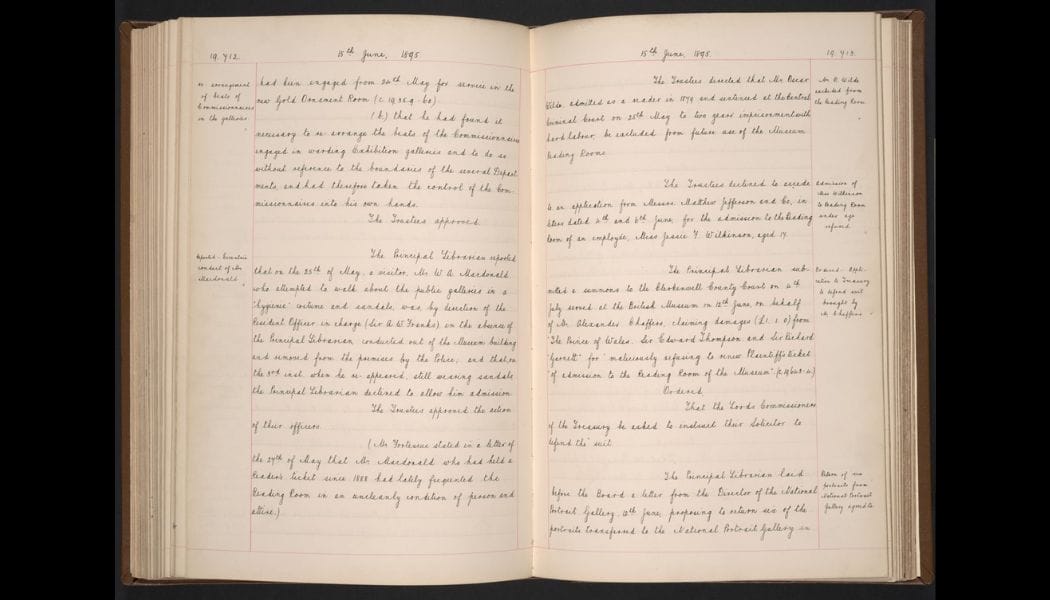 19,712.
15th June, 1895.
re-arrangement
of beats of
Commissionnaires
in the galleries.
had been engaged from 24th May for service in the
new Gold Ornament Room (c.
(b) that he had found it
necessary to re-arrange the beats of the Commissionnaires
engaged in warding Exhibition galleries and to do so
without reference to the boundaries of the several Depart-
ments, and had therefore taken the control of the Com-
missionnaires into his own hands.
The Trustees approved.
reported
conduct of Mr
Macdonald.
The Principal Librarian reported
that on the 25th of May, a visitor, Mr. W. A. Macdonald
who attempted to walk about the public galleries in a
"hygienic" costume and sandals, was, by direction of the
Resident Officer in charge (Sir A. W. Franks), in the absence of
the Principal Librarian conducted out of the Museum building
and removed from the premises by the Police; and that, on
the 3rd inst. when he re-appeared, still wearing sandals
the Principal Librarian declined to allow him admission.
The Trustees approved the action
of their officers.
(Mr. Fortescue stated in a letter of
the 27th of May that Mr. Macdonald who had held a
Reader's ticket since 1888 had lately frequented the
Reading Room in an uncleanly condition of person and
attire.)
15th June, 1895.
19,713.
Mr. O. Wilde
excluded from
the Reading Room
The Trustees directed that Mr. Oscar
Wilde, admitted as a reader in 1879 and sentenced at the Central
Criminal Court on 25th May to two years imprisonment with
hard labour, be excluded from future use of the Museum
Reading Room.
Admission of
Miss Wilkinson
to Reading Room
under age
refused.
The Trustees declined to accede
to an application from Messrs. Matthew Jefferson and Co., in
letters dated 4th and 6th June, for the admission to the Reading
Room of an employée, Miss Jessie Y. Wilkinson, aged 17.
Ordered - Appli-
cation to Treasury
to defend suit
brought by
Mr Chaffers.
The Principal Librarian sub-
mitted a summons to the Clerkenwell County Court on 4th
July served at the British Museum on 12th June, on behalf
of Mr. Alexander Chaffers, claiming damages (£1. 1. 0) from
"The Prince of Wales, Sir Edward Thompson and Sir Richard
Garnett" for "maliciously refusing to renew Plaintiff's ticket
"of admission to the Reading Room of the Museum".
Ordered,
That the Lords Commissioners
of the Treasury be asked to instruct their Solicitor to
defend the suit.
Return of six
portraits from
National Portrait
Gallery agreed to.
The Principal Librarian laid
before the Board a letter from the Director of the National
Portrait Gallery, 10th June, proposing to return six of the
portraits transferred to the National Portrait Gallery in